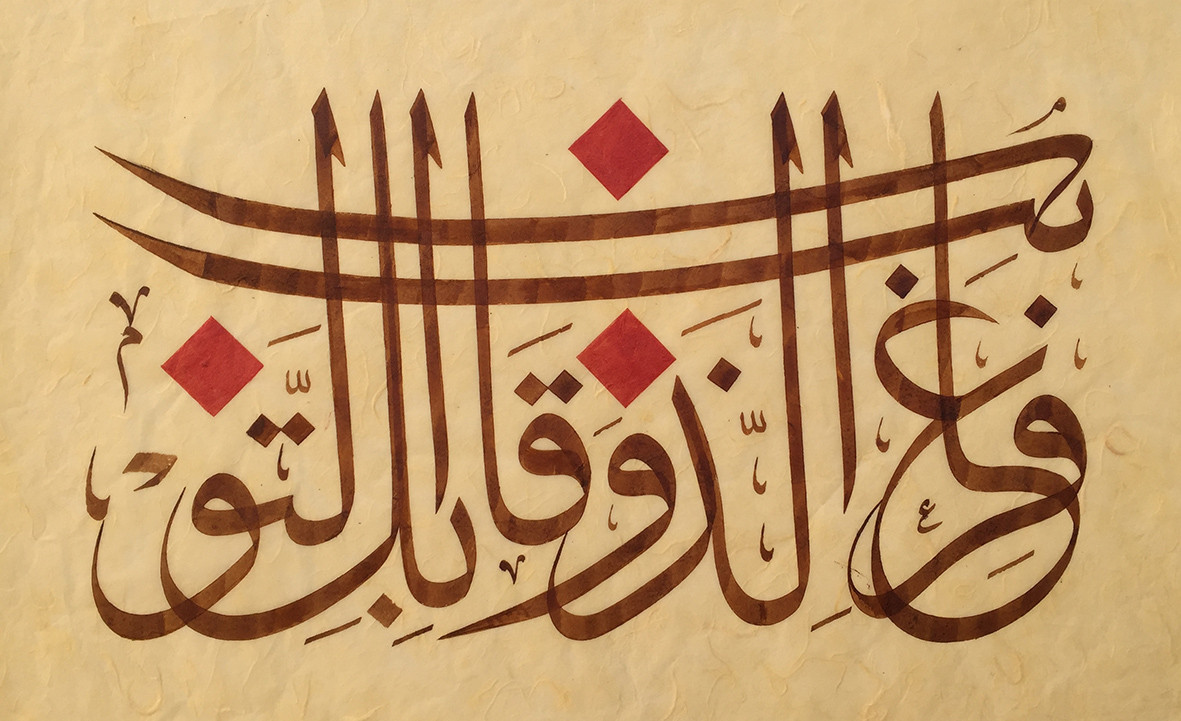 غَافِرِ الذَّنْبِ وَقَابِلِ التَّوْبِ